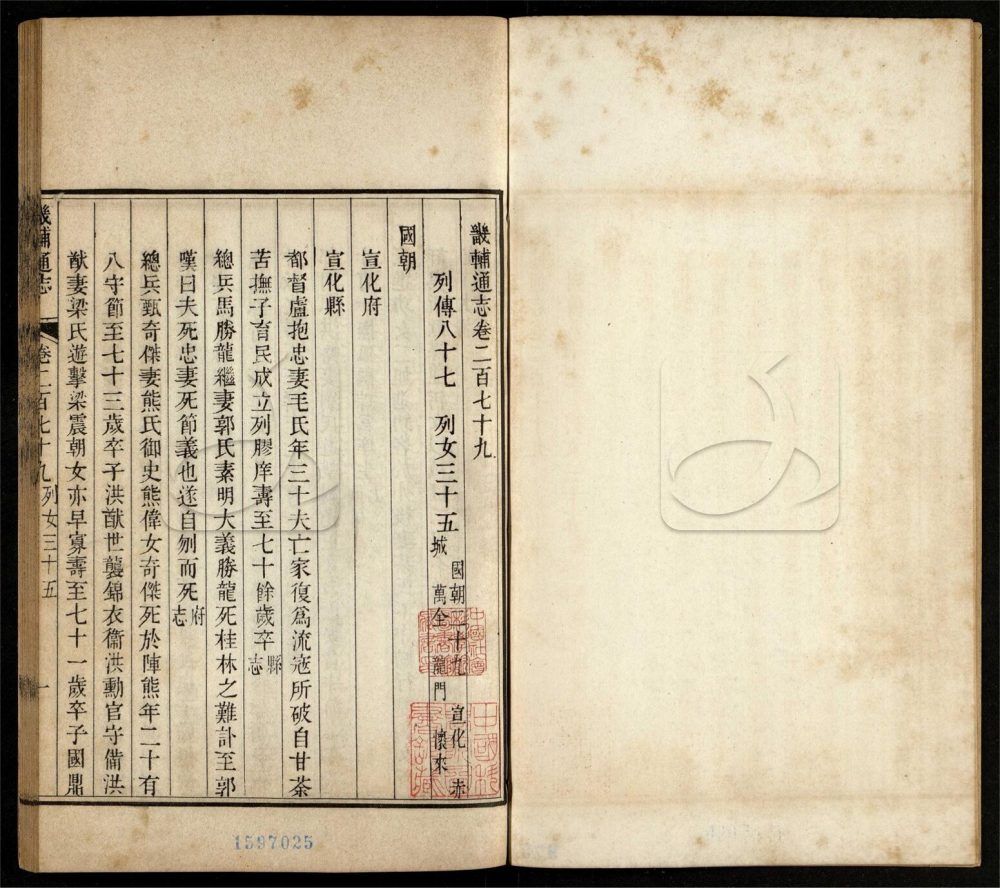 畿輔通志卷二百七十九
列傳八十七 列女三十五 國朝二十九 宣化 赤
城 萬全 龍門 懷來
國朝
宣化府
宣化縣
都督盧抱忠妻毛氏年三十夫亡家復爲流寇所破自甘茶
苦撫子育民成立列膠庠壽至七十餘歲卒縣志
總兵馬勝龍繼妻郭氏素明大義勝龍死桂林之難訃至郭
嘆曰夫死忠妻死節義也遂自刎而死府志
總兵甄奇傑妻熊氏御史熊偉女奇傑死於陣熊年二十有
八守節至七十三歲卒子洪猷世襲錦衣衞洪勳官守備洪
猷妻梁氏遊擊梁震朝女亦早寡壽至七十一歲卒子國鼎
畿輔通志 卷二百七十九 列女三十五 一
1597025